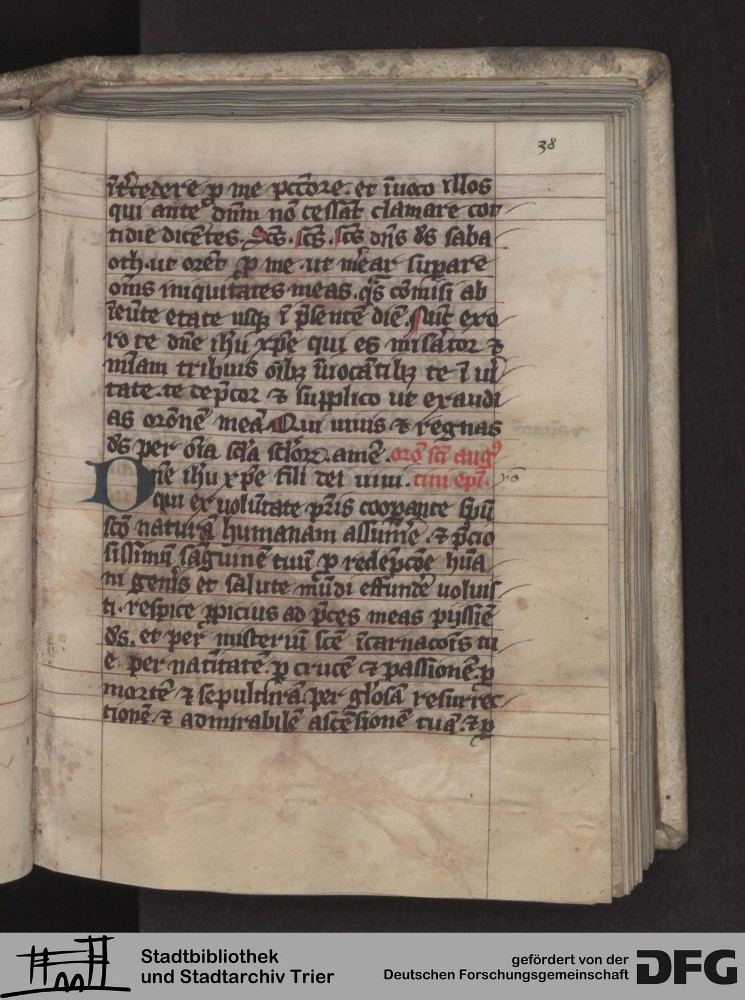 38
ıt͛cedere ꝑ me pctōre. et īuoco illos
qui ante dn̄m nō cessāt clamare cot
tidie dicētes. Sc̄s. sc̄s. sc̄s dn̄s ds̄ saba
oth. ut orēt ꝑ me. ut m͛ear suꝑare
om̄s iniquitates meas. q̄s cōmisi ab
ıeūte etate usqꝫ ī p̄sentē diē. exo
ro te dn̄e ih̄u xp̄e qui es mis͛ator ⁊
mīam tribuis oībꝫ īuocātibꝫ te ī u͛i
tate. te dep͛cor ⁊ supplico ut exaudi
as orōnē meā. Qui uiuis ⁊ regnas
ds̄ per oīa sc̄la sc̄loꝝ. amē. orō sc̄i augꝰ
Dn̄e ih̄u xp̄e fili dei uiui. tini ep̄i.
qui ex uolūtate p̄ris coopante sp̄u
sc̄o naturā humanam assumͥe. ⁊ p̄cio
sissimū saguinē tuū ꝓ redēpcōe hūa
ni gen͛is et salute mūdi effundͤe uoluis
ti. respice ꝓpicius ad p̄ces meas pijssiē
ds̄. et per misteriū sc̄e īcarnacōis tu
e. per natiuitatē. ꝑ crucē ⁊ passionē. ꝑ
mortē ⁊ sepulturā. per gl͛osā resurrec
tionē ⁊ admirabilē ascēsionē tuā. ⁊ ꝑ
Stadtbibliothek
und Stadtarchiv Trier
gefördert von der
Deutschen Forschungsgemeinschaft
DFG